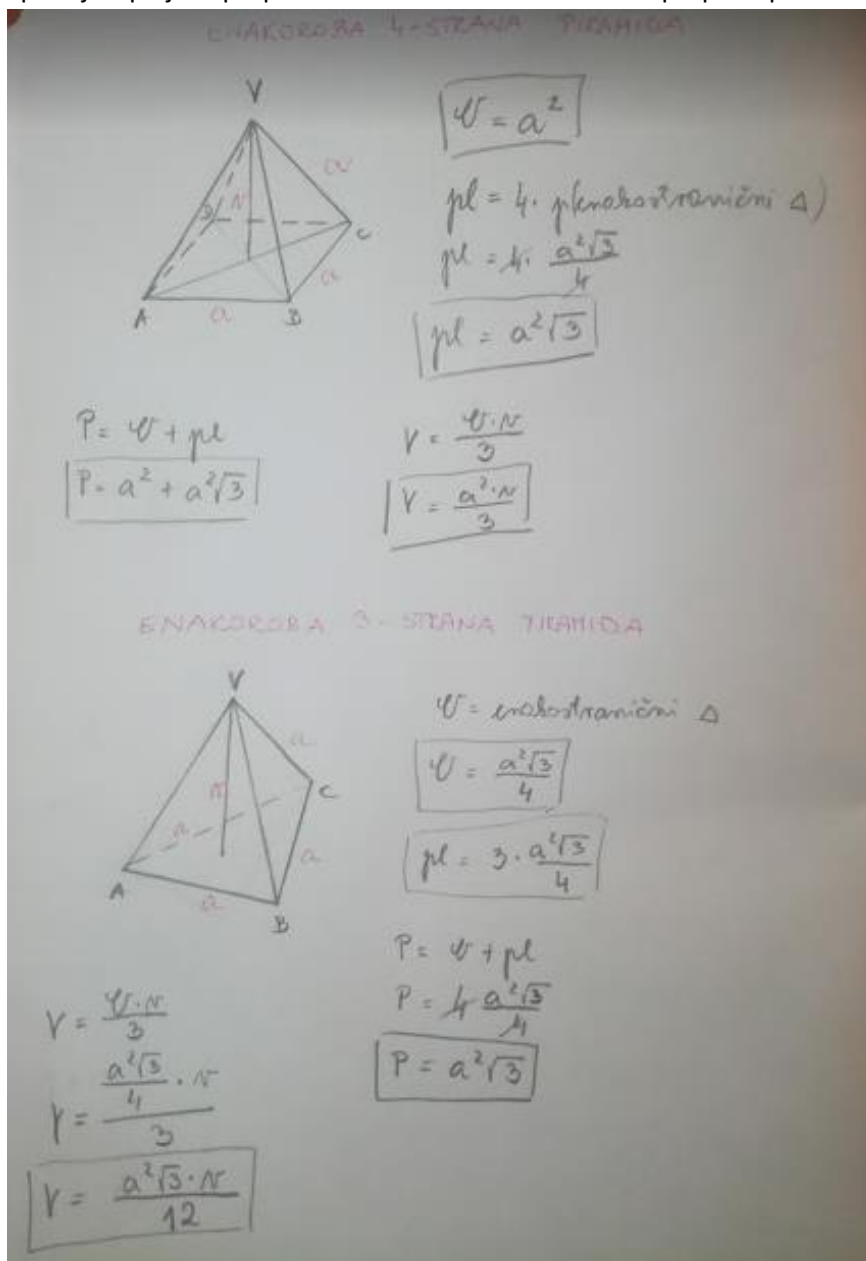 ENAKOROBA 4-STRANA PIRAMIDA
V
a
D
v
C
a
A
a
B
O = a²
pl = 4 · p(enakostranični Δ)
pl = 4 · a²√3/4
pl = a²√3
P = O + pl
P = a² + a²√3
V = O·v/3
V = a²·v/3
ENAKOROBA 3-STRANA PIRAMIDA
V
a
v
C
a
a
A
a
B
O = enakostranični Δ
O = a²√3/4
pl = 3 · a²√3/4
P = O + pl
P = 4 a²√3/4
P = a²√3
V = O·v/3
V = a²√3/4 · v/3
V = a²√3 · v/12